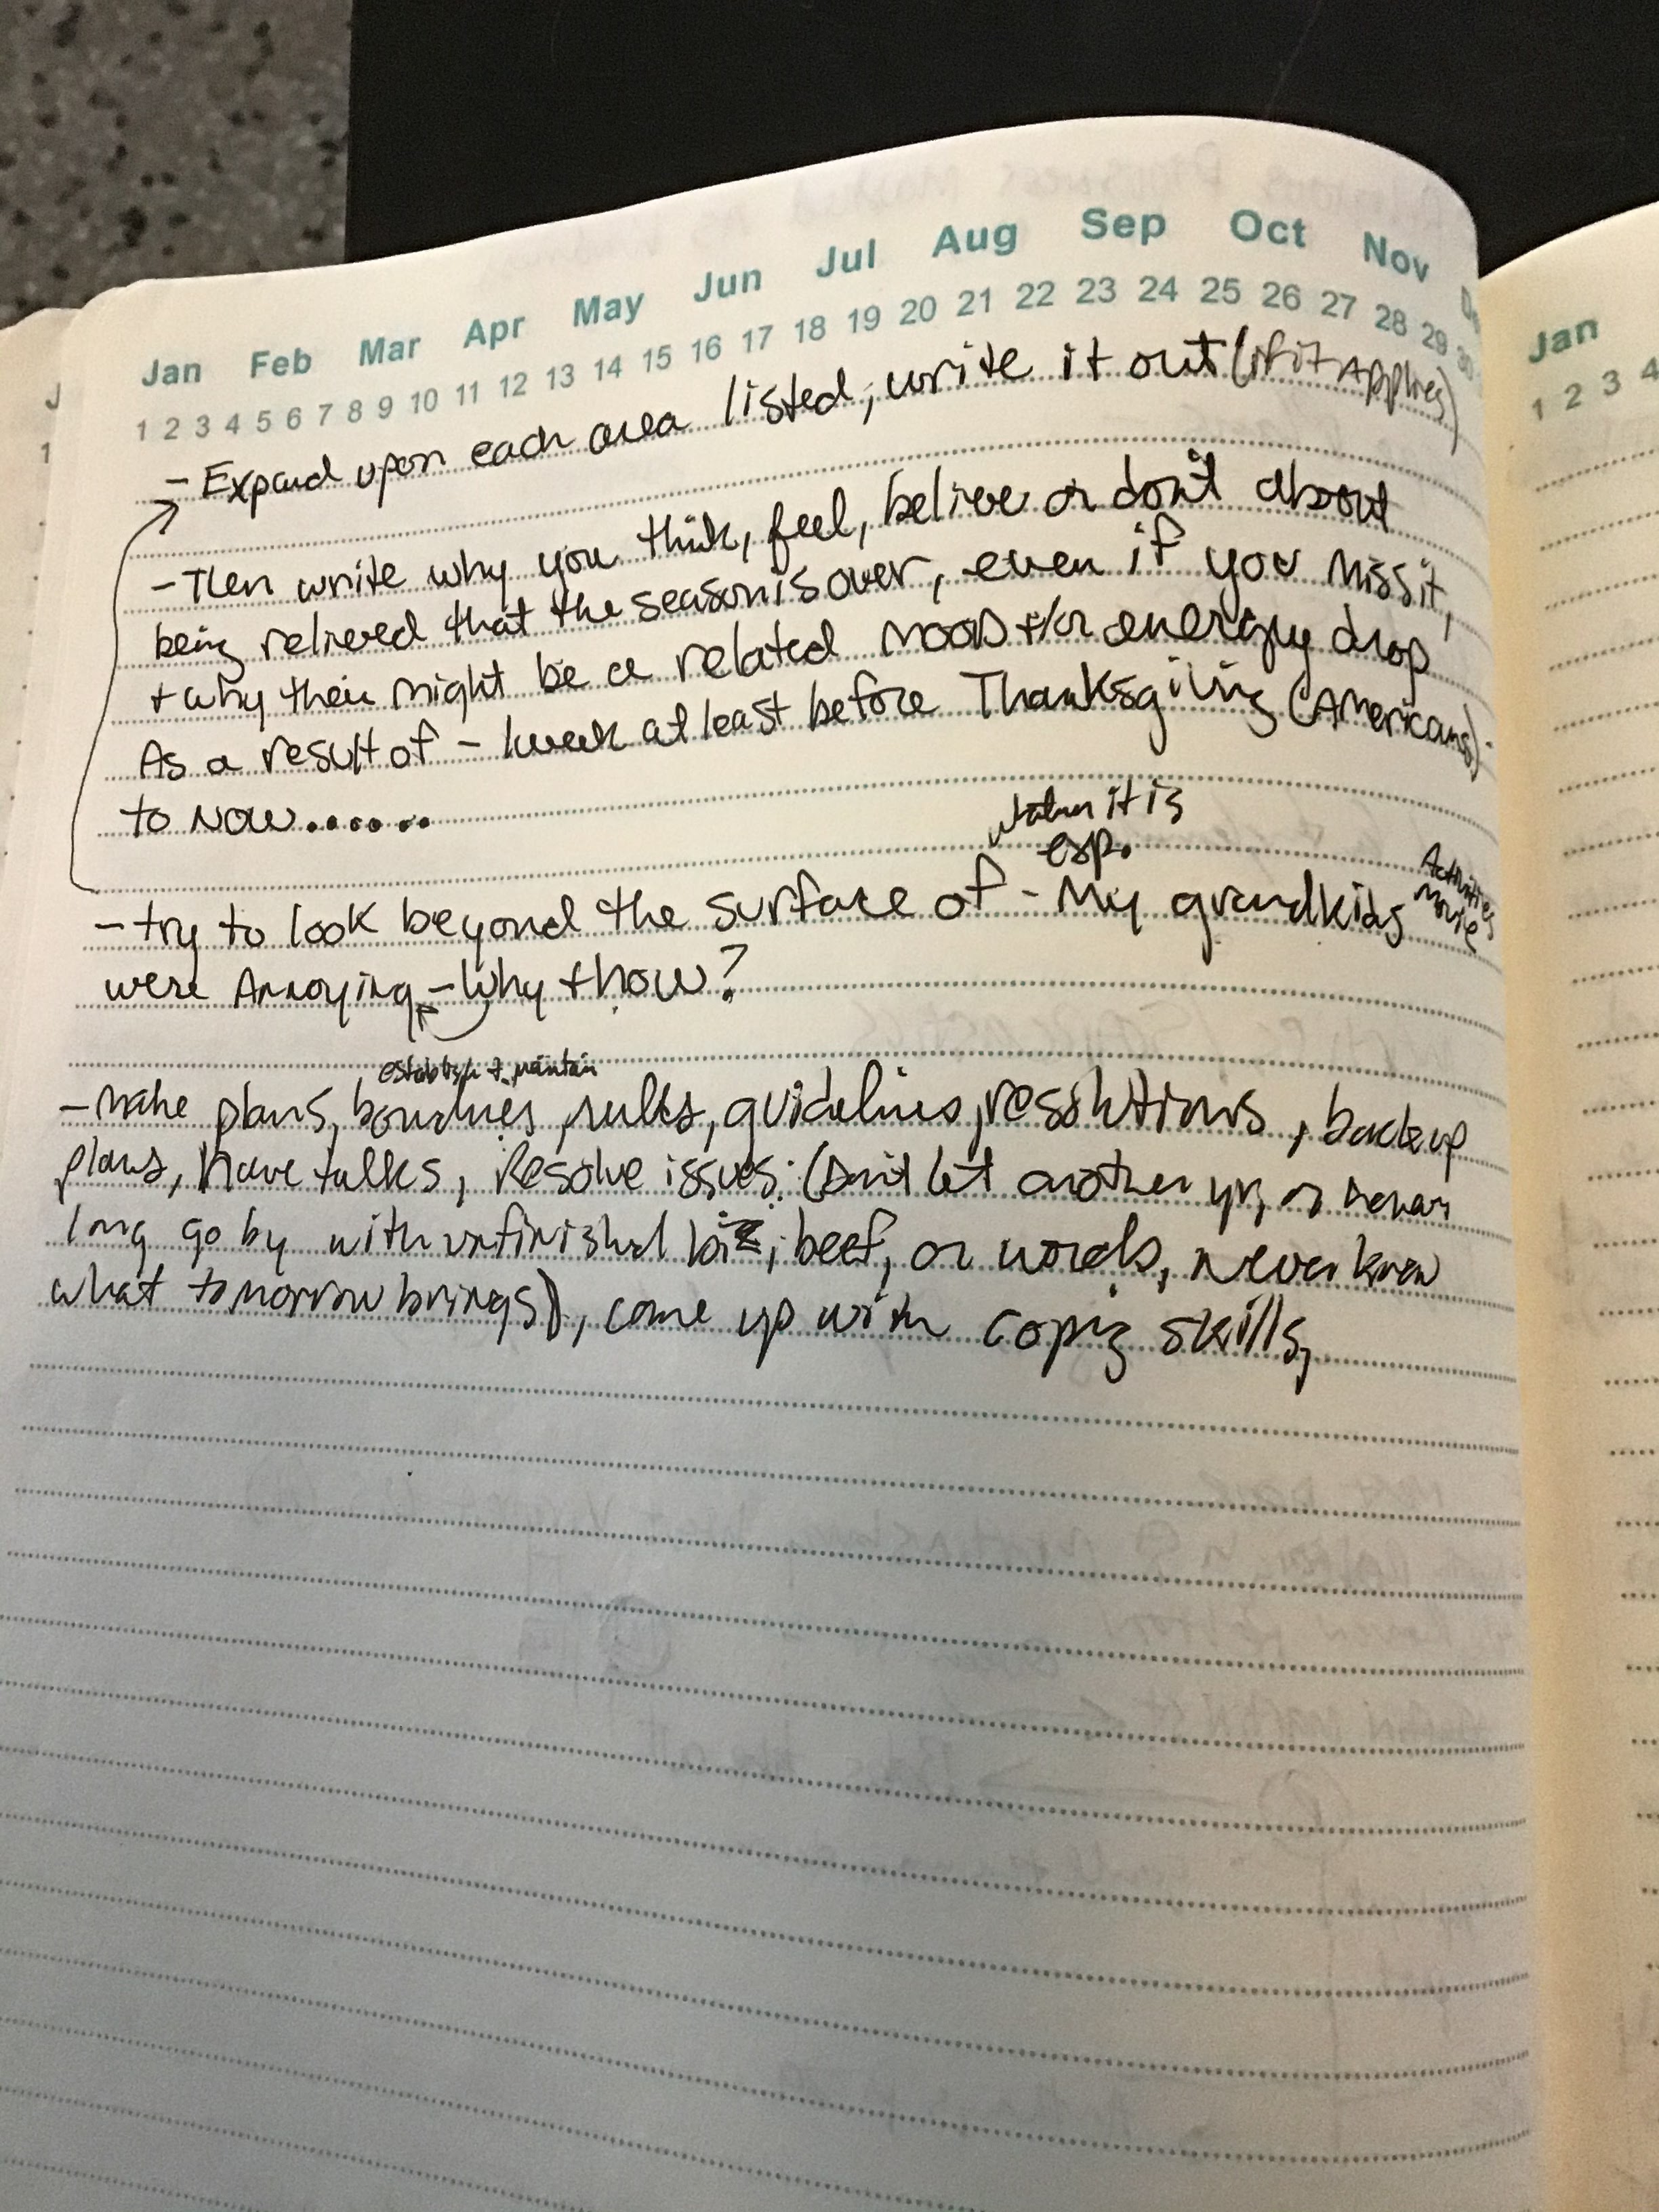 Jan Feb Mar Apr May Jun Jul Aug Sep Oct Nov
1 2 3 4 5 6 7 8 9 10 11 12 13 14 15 16 17 18 19 20 21 22 23 24 25 26 27 28 29 30
- Expand upon each area listed, write it out (if it Applies)
- Then write why you think, feel, believe or don't about
being relieved that the season is over, even if you miss it,
+ why their might be a related mood +/or energy drop
As a result of - 1 week at least before Thanksgiving (Americans).
to NOW.......
when it is
esp.
- try to look beyond the surface of - My grandkids
Activities
were Annoying - Why + how?
establish + maintain
- make plans, boundries, rules, guidelines, resolutions, backup
plans, have talks, Resolve issues: (Don't let another yr, or
long go by with unfinished biz, beef, or words, never know
what tomorrow brings), come up with coping skills,
Jan
1 2 3 4
J
1